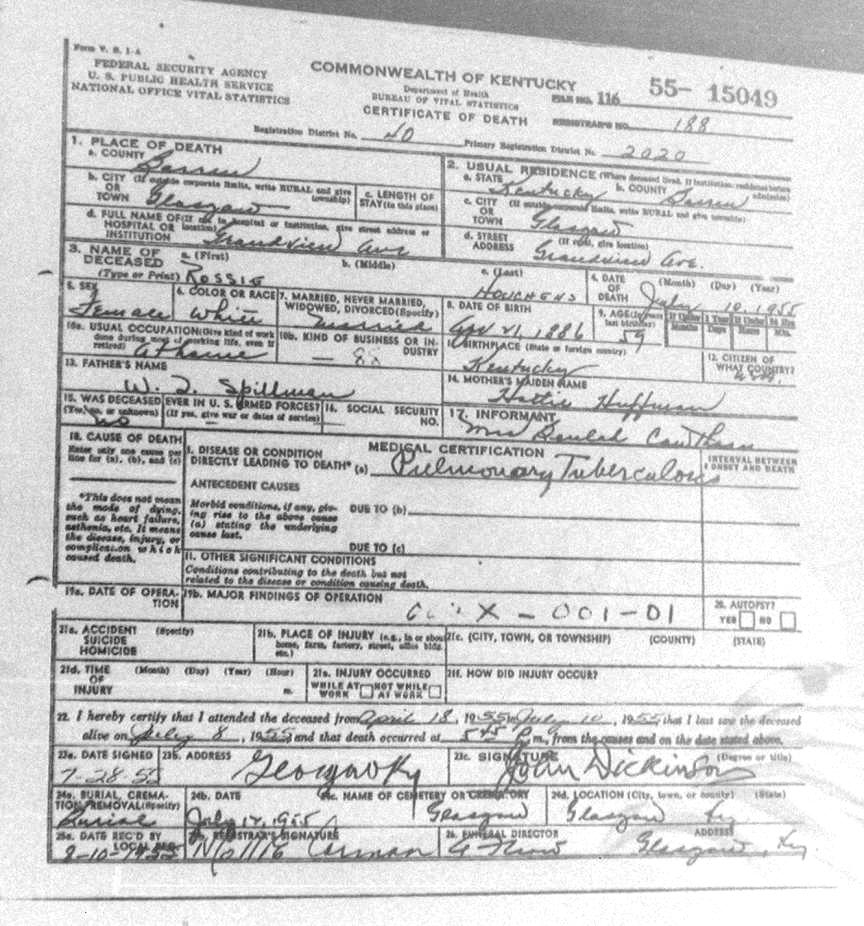 Form V. S. 1-A
FEDERAL SECURITY AGENCY
U. S. PUBLIC HEALTH SERVICE
NATIONAL OFFICE VITAL STATISTICS
COMMONWEALTH OF KENTUCKY
Department of Health
BUREAU OF VITAL STATISTICS
CERTIFICATE OF DEATH
FILE NO. 116 55- 15049
REGISTRAR'S NO. 188
Registration District No. 40 Primary Registration District No. 2020
1. PLACE OF DEATH
a. COUNTY Barren
b. CITY (If outside corporate limits, write RURAL and give township)
OR TOWN Glasgow
c. LENGTH OF STAY (in this place)
d. FULL NAME OF (If not in hospital or institution, give street address or location)
HOSPITAL OR INSTITUTION Grandview Ave
2. USUAL RESIDENCE (Where deceased lived. If institution: residence before admission)
a. STATE Kentucky b. COUNTY Barren
c. CITY (If outside corporate limits, write RURAL and give township)
OR TOWN Glasgow
d. STREET ADDRESS (If rural, give location)
Grandview Ave.
3. NAME OF DECEASED (Type or Print)
a. (First) b. (Middle) c. (Last)
Rossie Houchens
4. DATE OF DEATH (Month) (Day) (Year)
July 10, 1955
5. SEX
Female
6. COLOR OR RACE
White
7. MARRIED, NEVER MARRIED, WIDOWED, DIVORCED (Specify)
Married
8. DATE OF BIRTH
21, 1886
9. AGE (In years last birthday)
59
If Under 1 Year Months Days
If Under 24 Hrs Hours Min.
10a. USUAL OCCUPATION (Give kind of work done during most of working life, even if retired)
At home
10b. KIND OF BUSINESS OR INDUSTRY
— 88
11. BIRTHPLACE (State or foreign country)
Kentucky
12. CITIZEN OF WHAT COUNTRY?
USA
13. FATHER'S NAME
W. J. Spillman
14. MOTHER'S MAIDEN NAME
Hattie Huffman
15. WAS DECEASED EVER IN U. S. ARMED FORCES?
(Yes, no, or unknown) (If yes, give war or dates of service)
No
16. SOCIAL SECURITY NO.
17. INFORMANT
Mrs Beulah
18. CAUSE OF DEATH
Enter only one cause per line for (a), (b), and (c)
*This does not mean the mode of dying, such as heart failure, asthenia, etc. It means the disease, injury, or complication which caused death.
MEDICAL CERTIFICATION
INTERVAL BETWEEN ONSET AND DEATH
I. DISEASE OR CONDITION
DIRECTLY LEADING TO DEATH* (a) Pulmonary Tuberculosis
ANTECEDENT CAUSES
Morbid conditions, if any, giving rise to the above cause (a) stating the underlying cause last.
DUE TO (b)
DUE TO (c)
11. OTHER SIGNIFICANT CONDITIONS
Conditions contributing to the death but not related to the disease or condition causing death.
19a. DATE OF OPERATION
19b. MAJOR FINDINGS OF OPERATION
X - 001-01
20. AUTOPSY?
YES NO
21a. ACCIDENT SUICIDE HOMICIDE (Specify)
21b. PLACE OF INJURY (e.g., in or about home, farm, factory, street, office bldg. etc.)
21c. (CITY, TOWN, OR TOWNSHIP) (COUNTY) (STATE)
21d. TIME OF INJURY (Month) (Day) (Year) (Hour) m.
21e. INJURY OCCURRED
WHILE AT WORK NOT WHILE AT WORK
21f. HOW DID INJURY OCCUR?
22. I hereby certify that I attended the deceased from April 18, 1955 to July 10, 1955 that I last saw the deceased
alive on July 8, 1955 and that death occurred at 545 P m., from the causes and on the date stated above.
23a. DATE SIGNED
7-28-55
23b. ADDRESS
Glasgow Ky
23c. SIGNATURE (Degree or title)
John Dickinson
24a. BURIAL, CREMATION, REMOVAL (Specify)
Burial
24b. DATE
July 12, 1955
24c. NAME OF CEMETERY OR CREMATORY
Glasgow
24d. LOCATION (City, town, or county) (State)
Glasgow Ky
25a. DATE REC'D BY LOCAL REG.
8-10-1955
25b. REGISTRAR'S SIGNATURE
Mollie
26. FUNERAL DIRECTOR ADDRESS
Glasgow, Ky